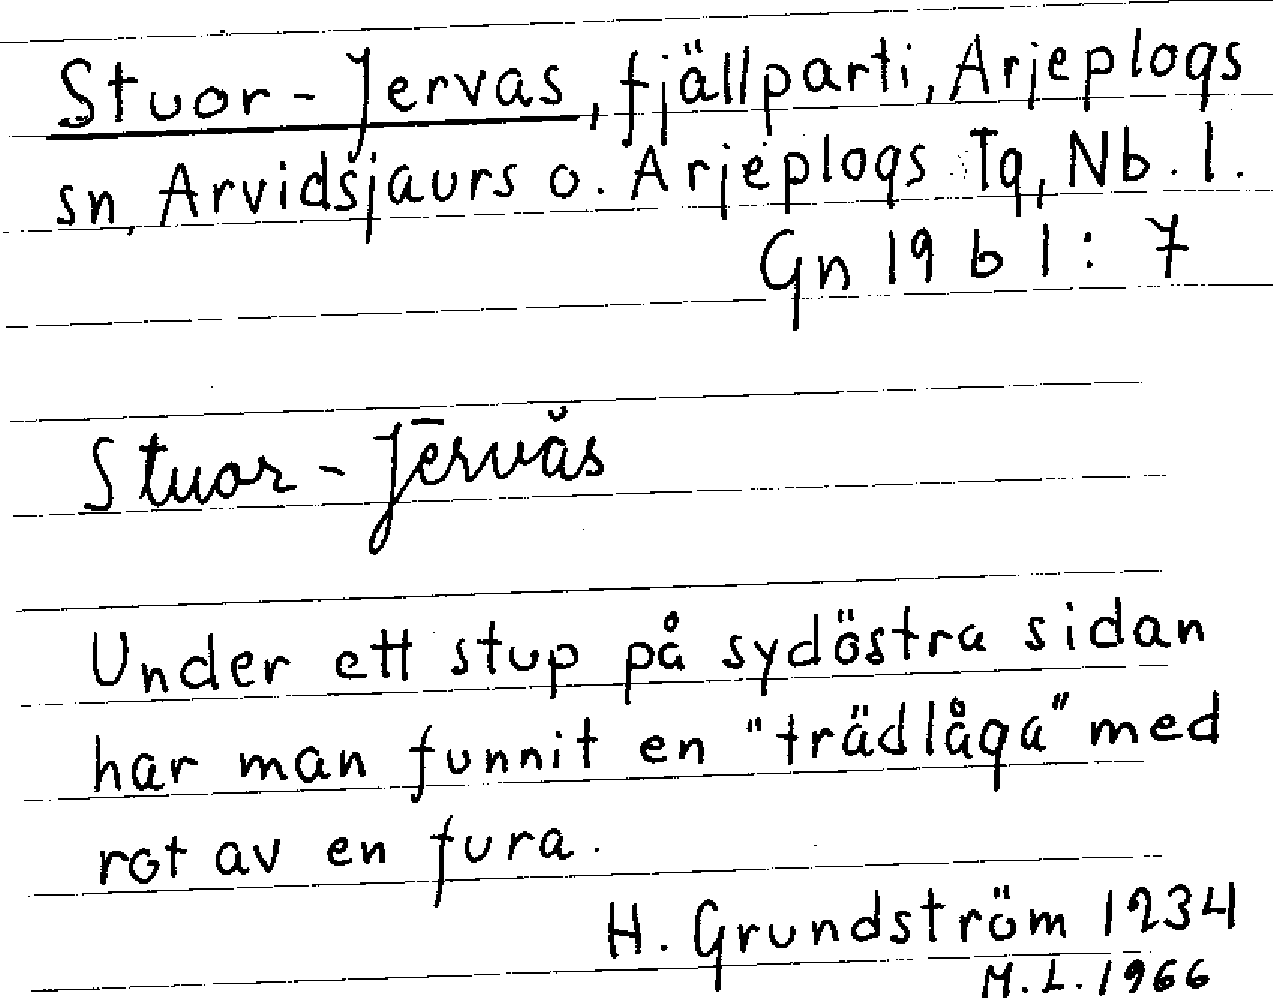 Stuor-Jervas, fjällparti, Arjeplogs
sn, Arvidsjaurs o. Arjeplogs Tg, Nb. l.
Gn 19 b 1: 7
Stuor-Jērvăs
Under ett stup på sydöstra sidan
har man funnit en "trädlåga" med
rot av en fura.
H. Grundström 1234
M.L. 1966